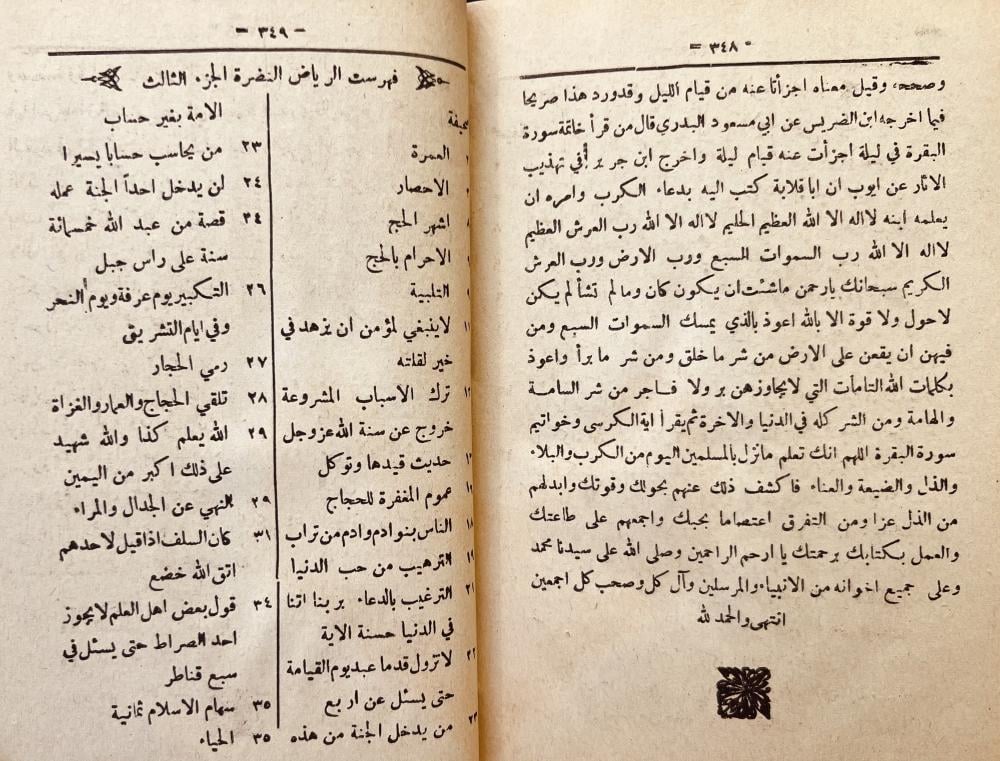 = ٣٤٨ -
وصححه، وقيل معناه اجزأتا عنه من قيام الليل وقدورد هذا صريحا
فيما اخرجه ابن الضريس عن ابي مسعود البدري قال من قرأ خاتمة سورة
البقرة في ليلة اجزأت عنه قيام ليلة واخرج ابن جرير في تهذيب
الاثار عن ايوب ان ابا قلابة كتب اليه بدعاء الكرب وامره ان
يعلمه ابنه لااله الا الله العظيم الحليم لااله الا الله رب العرش العظيم
لااله الا الله رب السموات السبع ورب الارض ورب العرش
الكريم سبحانك يارحمن ماشئت ان يكون كان ومالم تشأ لم يكن
لاحول ولا قوة الا بالله اعوذ بالذي يمسك السموات السبع ومن
فيهن ان يقعن على الارض من شر ما خلق ومن شر ما برأ واعوذ
بكلمات الله التامات التي لايجاوزهن بر ولا فاجر من شر السامة
والهامة ومن الشر كله في الدنيا والاخرة ثم يقرأ اية الكرسى وخواتيم
سورة البقرة اللهم انك تعلم مانزل بالمسلمين اليوم من الكرب والبلاء
والذل والضيعة والعناء فاكشف ذلك عنهم بحولك وقوتك وابدلهم
من الذل عزا ومن التفرق اعتصاما بحبك واجمعهم على طاعتك
والعمل بكتابك برحمتك يا ارحم الراحمين وصلى الله على سيدنا محمد
وعلى جميع اخوانه من الانبياء والمرسلين وآل كل وصحب كل اجمعين
انتهى والحمد لله
- ٣٤٩ -
فهرست الرياض النضرة الجزء الثالث
العمرة
الاحصار
اشهر الحج
الاحرام بالحج
التلبية
لاينبغي لمؤمن ان يزهد في
خير لقلته
ترك الاسباب المشروعة
خروج عن سنة الله عزوجل
حديث قيدها وتوكل
عموم المغفرة للحجاج
الناس بنو ادم وادم من تراب
الترهيب من حب الدنيا
الترغيب بالدعاء بربنا اتنا
في الدنيا حسنة الاية
لاتزول قدما عبد يوم القيامة
حتى يسئل عن اربع
من يدخل الجنة من هذه
الامة بغير حساب
٢٣ من يحاسب حسابا يسيرا
٢٤ لن يدخل احداً الجنة عمله
٢٤ قصة من عبد الله خمسمائة
سنة على راس جبل
٢٦ التكبير يوم عرفة ويوم النحر
وفي ايام التشريق
٢٧ رمي الجمار
٢٨ تلقي الحجاج والعمار والغزاة
٢٩ الله يعلم كذا والله شهيد
على ذلك اكبر من اليمين
٢٩ النهي عن الجدال والمراء
٣١ كان السلف اذا قيل لاحدهم
اتق الله خضع
٣٤ قول بعض اهل العلم لايجوز
احد الصراط حتى يسئل في
سبع قناطر
٣٥ سهام الاسلام ثمانية
٣٥ الحياء